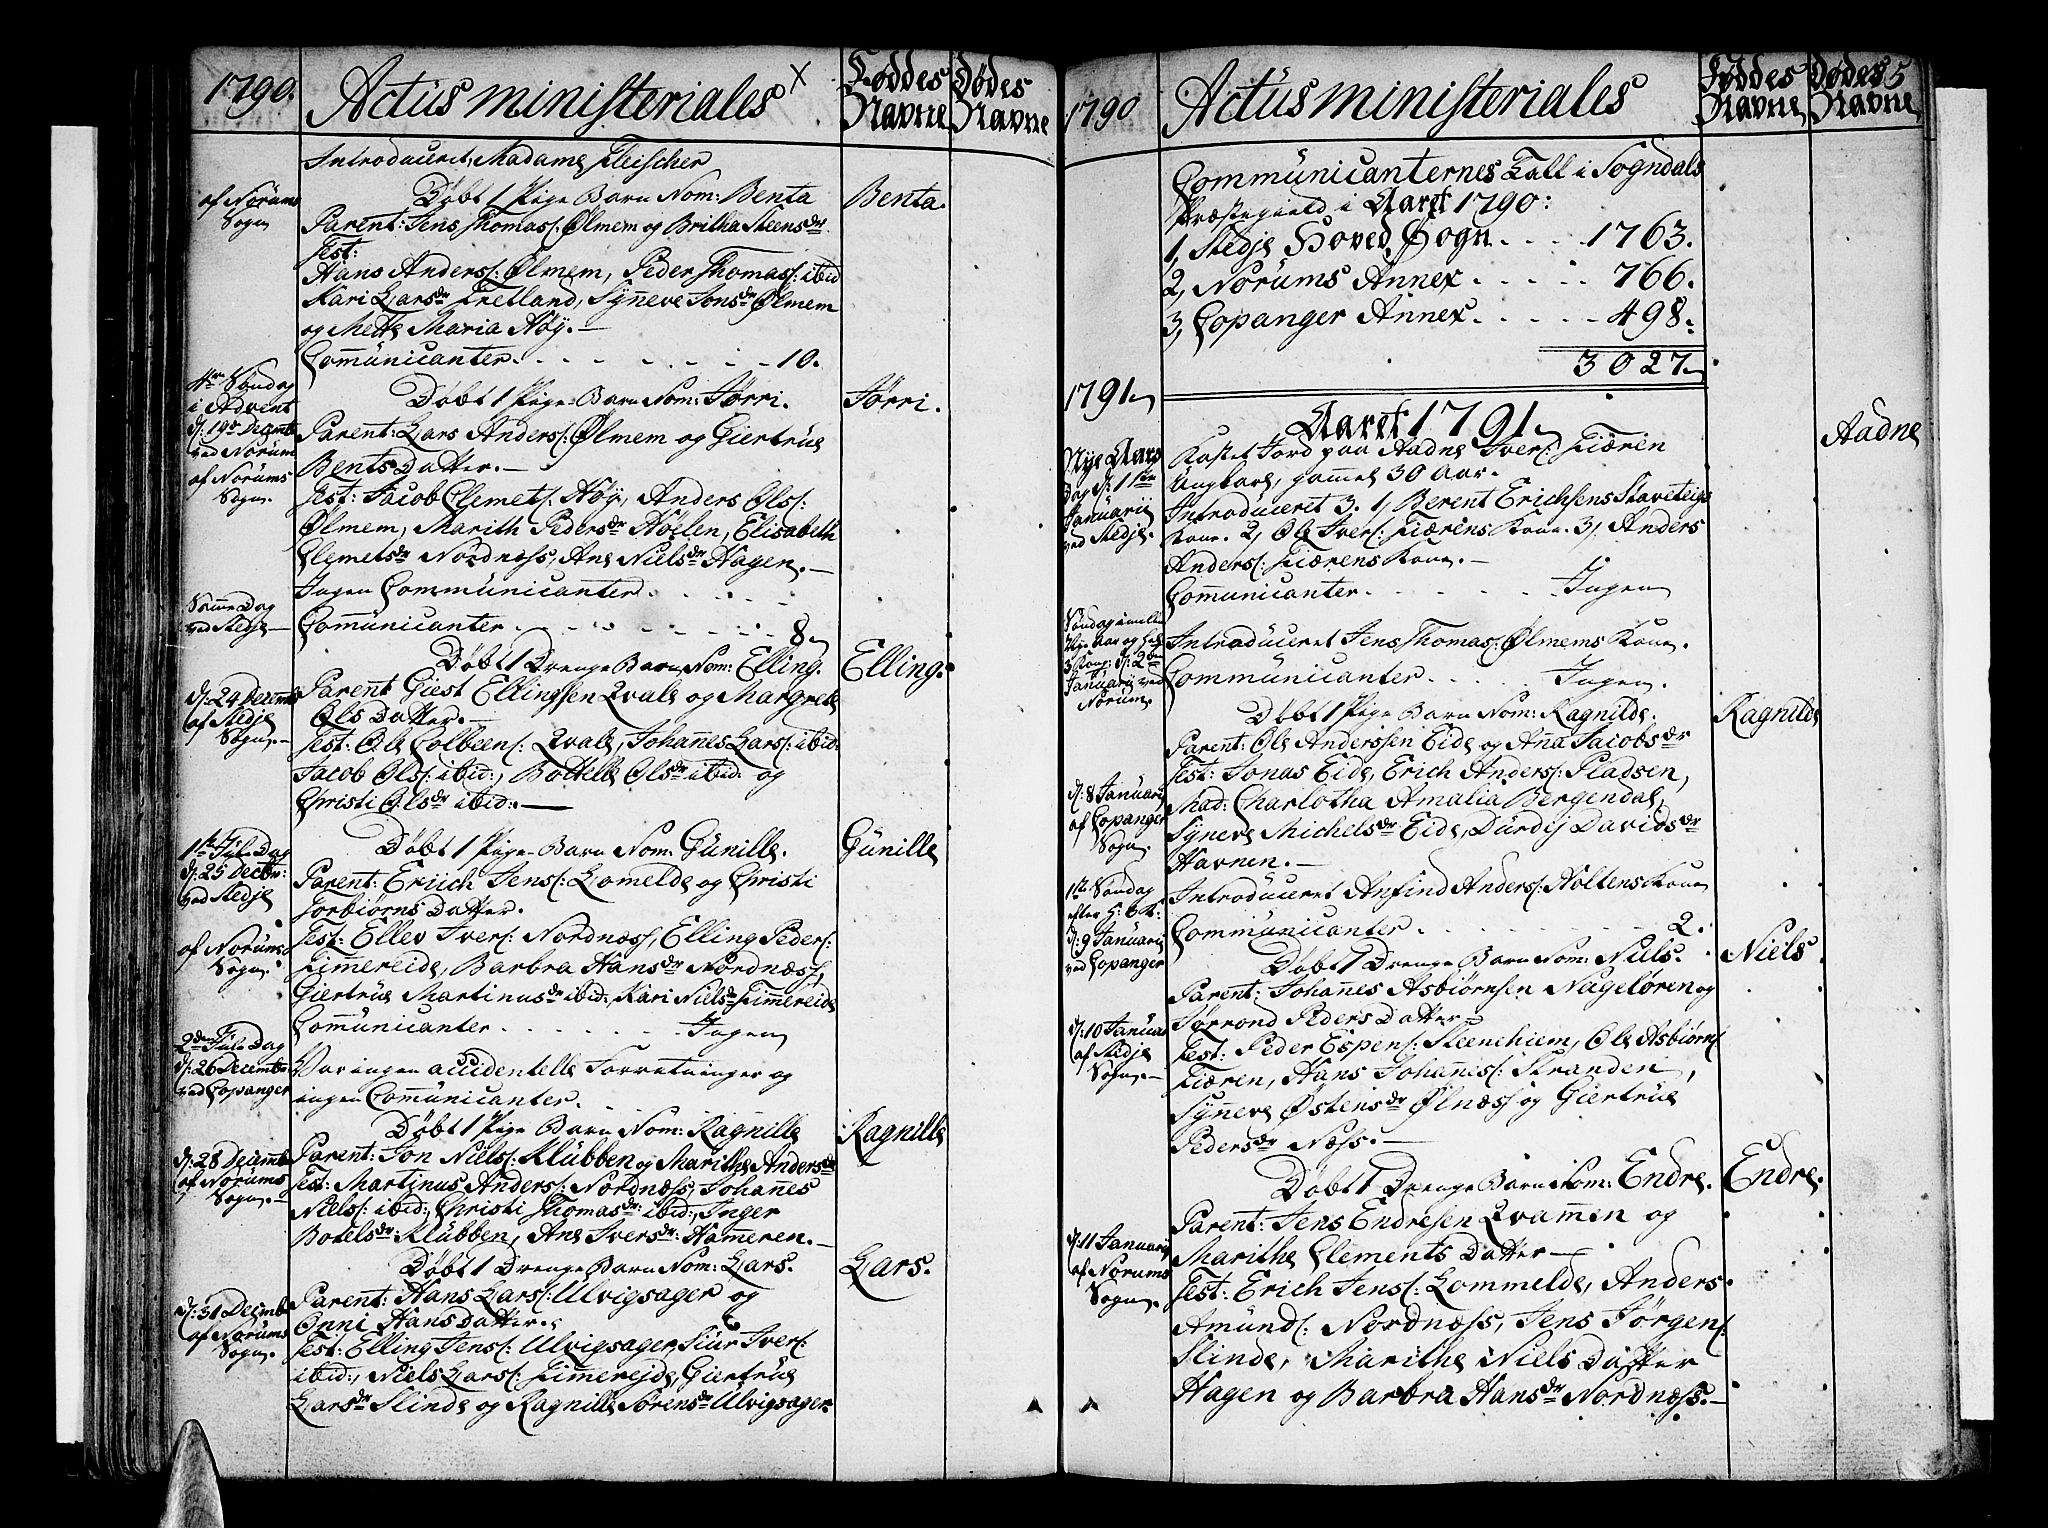 1790.
Actus ministeriales X
Føddes Navne
Dødes Navne
Introduceret Madame Fleischer
af Norums Sogn
Døbt 1 Pige Barn Nom: Benta
Benta.
Parent: Jens Thomas: Ølmem og Britha Steensdr
Test:
Hans Anders: Ølmem, Peder Thomas: ibid
Kari Larsdr Fretland, Synneve Jonsdr Ølmem
og Mette Maria Høy.—
Communicanter. . . . . . 10.
4de Søndag i Advent d: 19de Decmb ved Norum af Norums Sogn.
Døbt 1 Pige Barn Nom: Jørri.
Jørri.
Parent: Lars Anders: Ølmem og Giertrue
Bents Datter.—
Test: Jacob Clemets: Høy, Anders Ols:
Ølmem, Marith Pedersdr Hollen, Elisabeth
Clemetsdr Nordness, Ane Nielsdr Hagen.—
Ingen Communicanter. . . .
Samme Dag ved Stedje—
Communicanter . . . . . 8
Døbt 1 Drenge Barn Nom: Elling.
Elling.
d: 24 Decmb af Stedje Sogn.—
Parent Giest Ellingsen Qvale og Margrete
Ols Datter.—
Test: Ole Colbeen: Qvale, Johannes Lars: ibid:
Jacob Ols: ibid:, Botelle Olsdr ibid: og
Christi Olsdr ibid:.—
1ste Jule Dag d: 25 Decbr: ved Stedje
Døbt 1 Pige Barn Nom: Gunille.
Gunille
Parent: Erich Jens: Lomelde og Christi
Torbiørns Datter.
af Norums Sogn.
Test: Ellev Ivers: Nordness, Elling Peders:
Fimereide, Barbra Hansdr Nordness,
Giertrue Martinusdr ibid: Kari Nielsdr Fimereide
Communicanter . . . . . Ingen
2den Jule Dag d: 26 Decembr ved Copanger
Var ingen accidentelle Forretninger og
ingen Communicanter.
Døbt 1 Pige Barn Nom: Ragnille
Ragnille
d: 28 Decemb af Norums Sogn.—
Parent: Jon Niels: Klubben og Marithe Andersdr
Test: Martinus Anders: Nordness, Johannes
Niels: ibid:, Christi Thomasdr: ibid:, Inger
Botelsdr: Klubben, Ane Iversdr: Hameren.—
Døbt 1 Drenge Barn Nom: Lars.
Lars.
d: 31 Decmb af Norums Sogn.
Parent: Hans Lars: Ulvigsager og
Onni Hans Datter.
Test: Elling Jens: Ulvigsager, Siur Ivers:
ibid:, Niels Lars: Fimereide, Giertrue
Larsdr Slinde og Ragnille Sørensdr Ulvigsager
1790
Actus ministeriales
Føddes Navne
Dødes Navne
5
Communicanternes Tall i Sogndals
Præstegield i Aaret 1790:
1, Stedje Hoved Sogn . . . . 1763.
2, Norums Annex . . . . . 766.
3, Copanger Annex . . . . . 498.
3027.
1791
Aaret 1791
Nye Aars Dag d: 1ste Januarii ved Stedje.
Kastet Jord paa Aadne Ivers: Fiæren
Aadne
Ungkarl, gammel 30 Aar.
Introduceret 3. 1, Berent Erichsens Staveteigs
Kone. 2, Ole Ivers: Fiærens Kone. 3, Anders
Anders: Fiærens Kone.—
Communicanter. . . . . . Ingen
Søndag imellem Nye Aar og hel: 3 Kong: d: 2den Januarij ved Norum.
Introduceret Jens Thomas: Ølmems Kone.
Communicanter . . . . Ingen.
Døbt 1 Pige Barn Nom: Ragnilde.
Ragnilde
d: 8 Januarij af Copanger Sogn.
Parent: Ole Anderssen Eide og Anna Jacobsdr
Test: Jonas Eide, Erich Anders: Pladsen,
Mad: Charlotha Amalia Bergendal,
Synneve Michelsdr Eide, Durdej Davidsdr
Havnen.—
1ste Søndag efter H: 3 K: d: 9 Januarij ved Copanger
Introduceret Anfind Anders: Holtens Kone
Communicanter . . . . . 2.
Døbt 1 Drenge Barn Nom: Niels.
Niels
d: 10 Januar af Stedje Sogn.—
Parent: Johannes Asbiørnsen Nageløren og
Sørrond Peders Datter.
Test: Peder Espen: Steenehiem, Ole Asbiørn:
Fiæren, Hans Johannes: Stranden,
Synneve Østensdr Ølness og Giertrue
Pedersdr Næss.—
Døbt 1 Drenge Barn Nom: Endre.
Endre.
d: 11 Januarij af Norums Sogn.
Parent: Jens Endresen Qvammen og
Marithe Clements Datter—
Test: Erich Jens: Lommelde, Anders
Amund: Nordness, Jens Jørgen:
Slinde, Marithe Niels Datter
Hagen og Barbra Hansdr Nordness.—